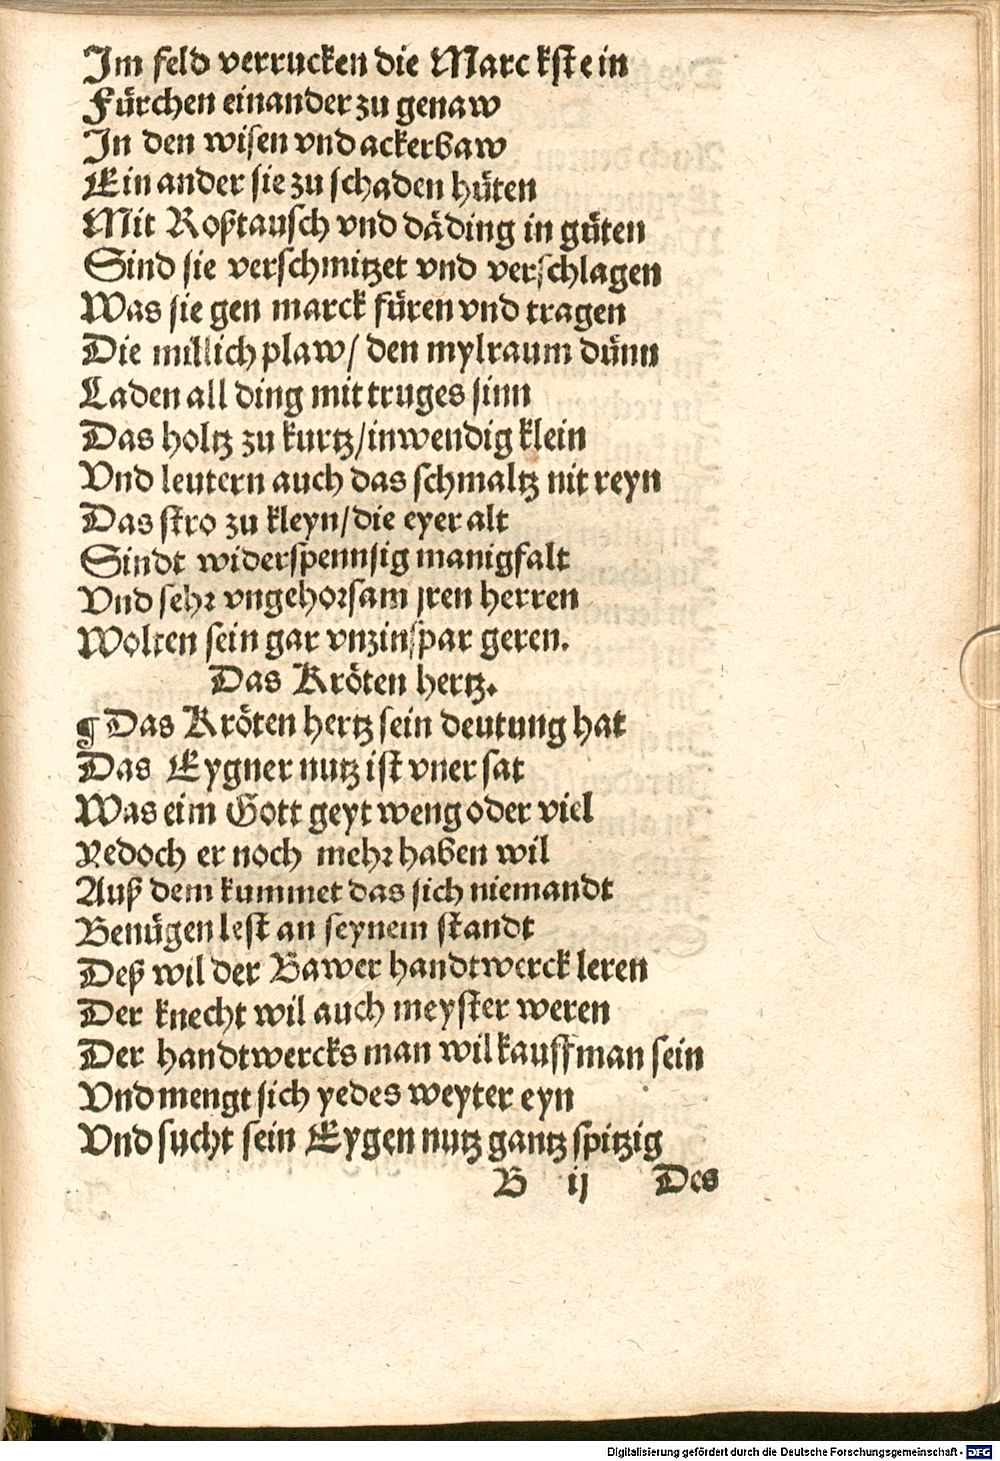 Im feld verrucken die Marckstein
Fürchen einander zu genaw
In den wisen vnd ackerbaw
Ein ander sie zu schaden hüten
Mit Roßtausch vnd däding in güten
Sind sie verschmitzet vnd verschlagen
Was sie gen marck füren vnd tragen
Die millich plaw / den mylraum dünn
Laden all ding mit truges sinn
Das holtz zu kurtz / inwendig klein
Vnd leutern auch das schmaltz nit reyn
Das stro zu kleyn / die eyer alt
Sindt widerspennsig manigfalt
Vnd sehr vngehorsam jren herren
Wolten sein gar vnzinspar geren.
Das Kröten hertz.
¶ Das Kröten hertz sein deutung hat
Das Eygner nutz ist vnersat
Was eim Gott geyt weng oder viel
Yedoch er noch mehr haben wil
Auß dem kummet das sich niemandt
Benügen lest an seynem standt
Deß wil der Bawer handtwerck leren
Der knecht wil auch meyster weren
Der handtwercks man wil kauffman sein
Vnd mengt sich yedes weyter eyn
Vnd sucht sein Eygen nutz gantz spitzig
B ij Des
Digitalisierung gefördert durch die Deutsche Forschungsgemeinschaft - DFG